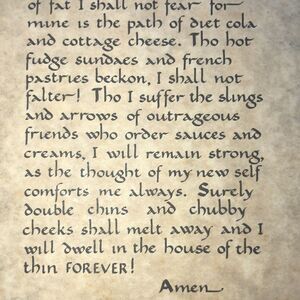 of fat I shall not fear for
mine is the path of diet cola
and cottage cheese. Tho hot
fudge sundaes and french
pastries beckon, I shall not
falter! Tho I suffer the slings
and arrows of outrageous
friends who order sauces and
creams, I will remain strong,
as the thought of my new self
comforts me always. Surely
double chins and chubby
cheeks shall melt away and I
will dwell in the house of the
thin FOREVER!
Amen